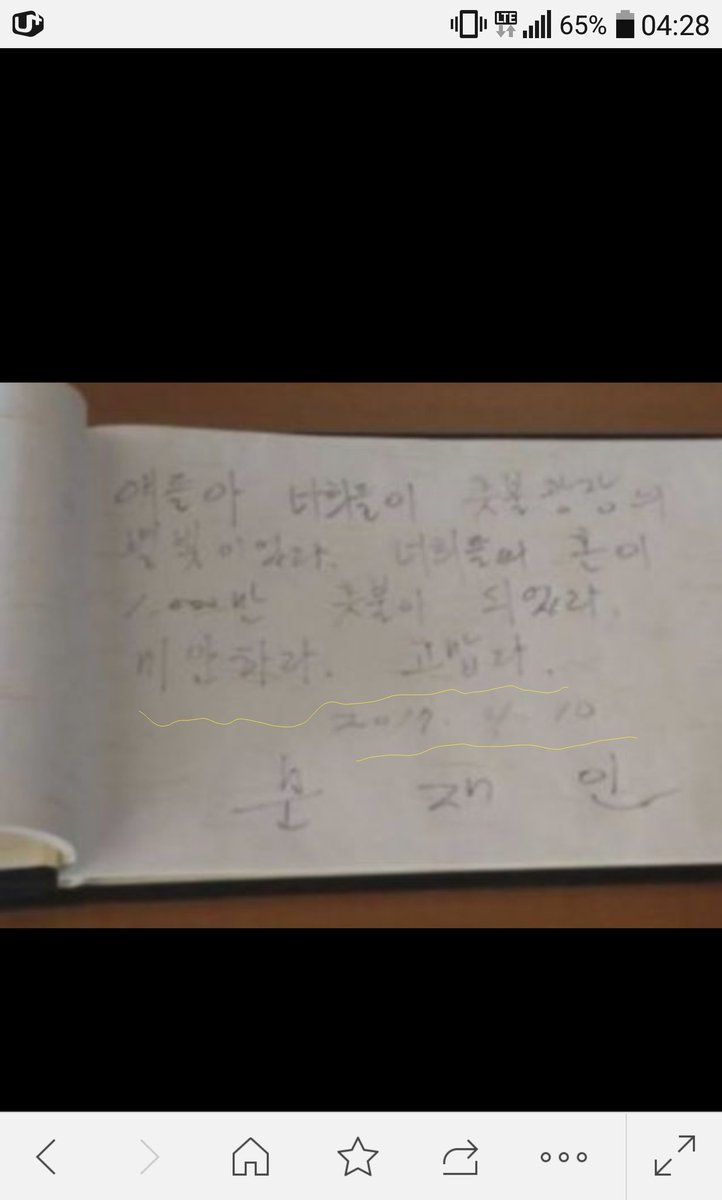 U+ LTE 65% 04:28
얘들아 너희들이 촛불광장의
별빛이었다. 너희들의 혼이
1,000만 촛불이 되었다.
미안하다. 고맙다.
2017. 4. 10
문 재 인